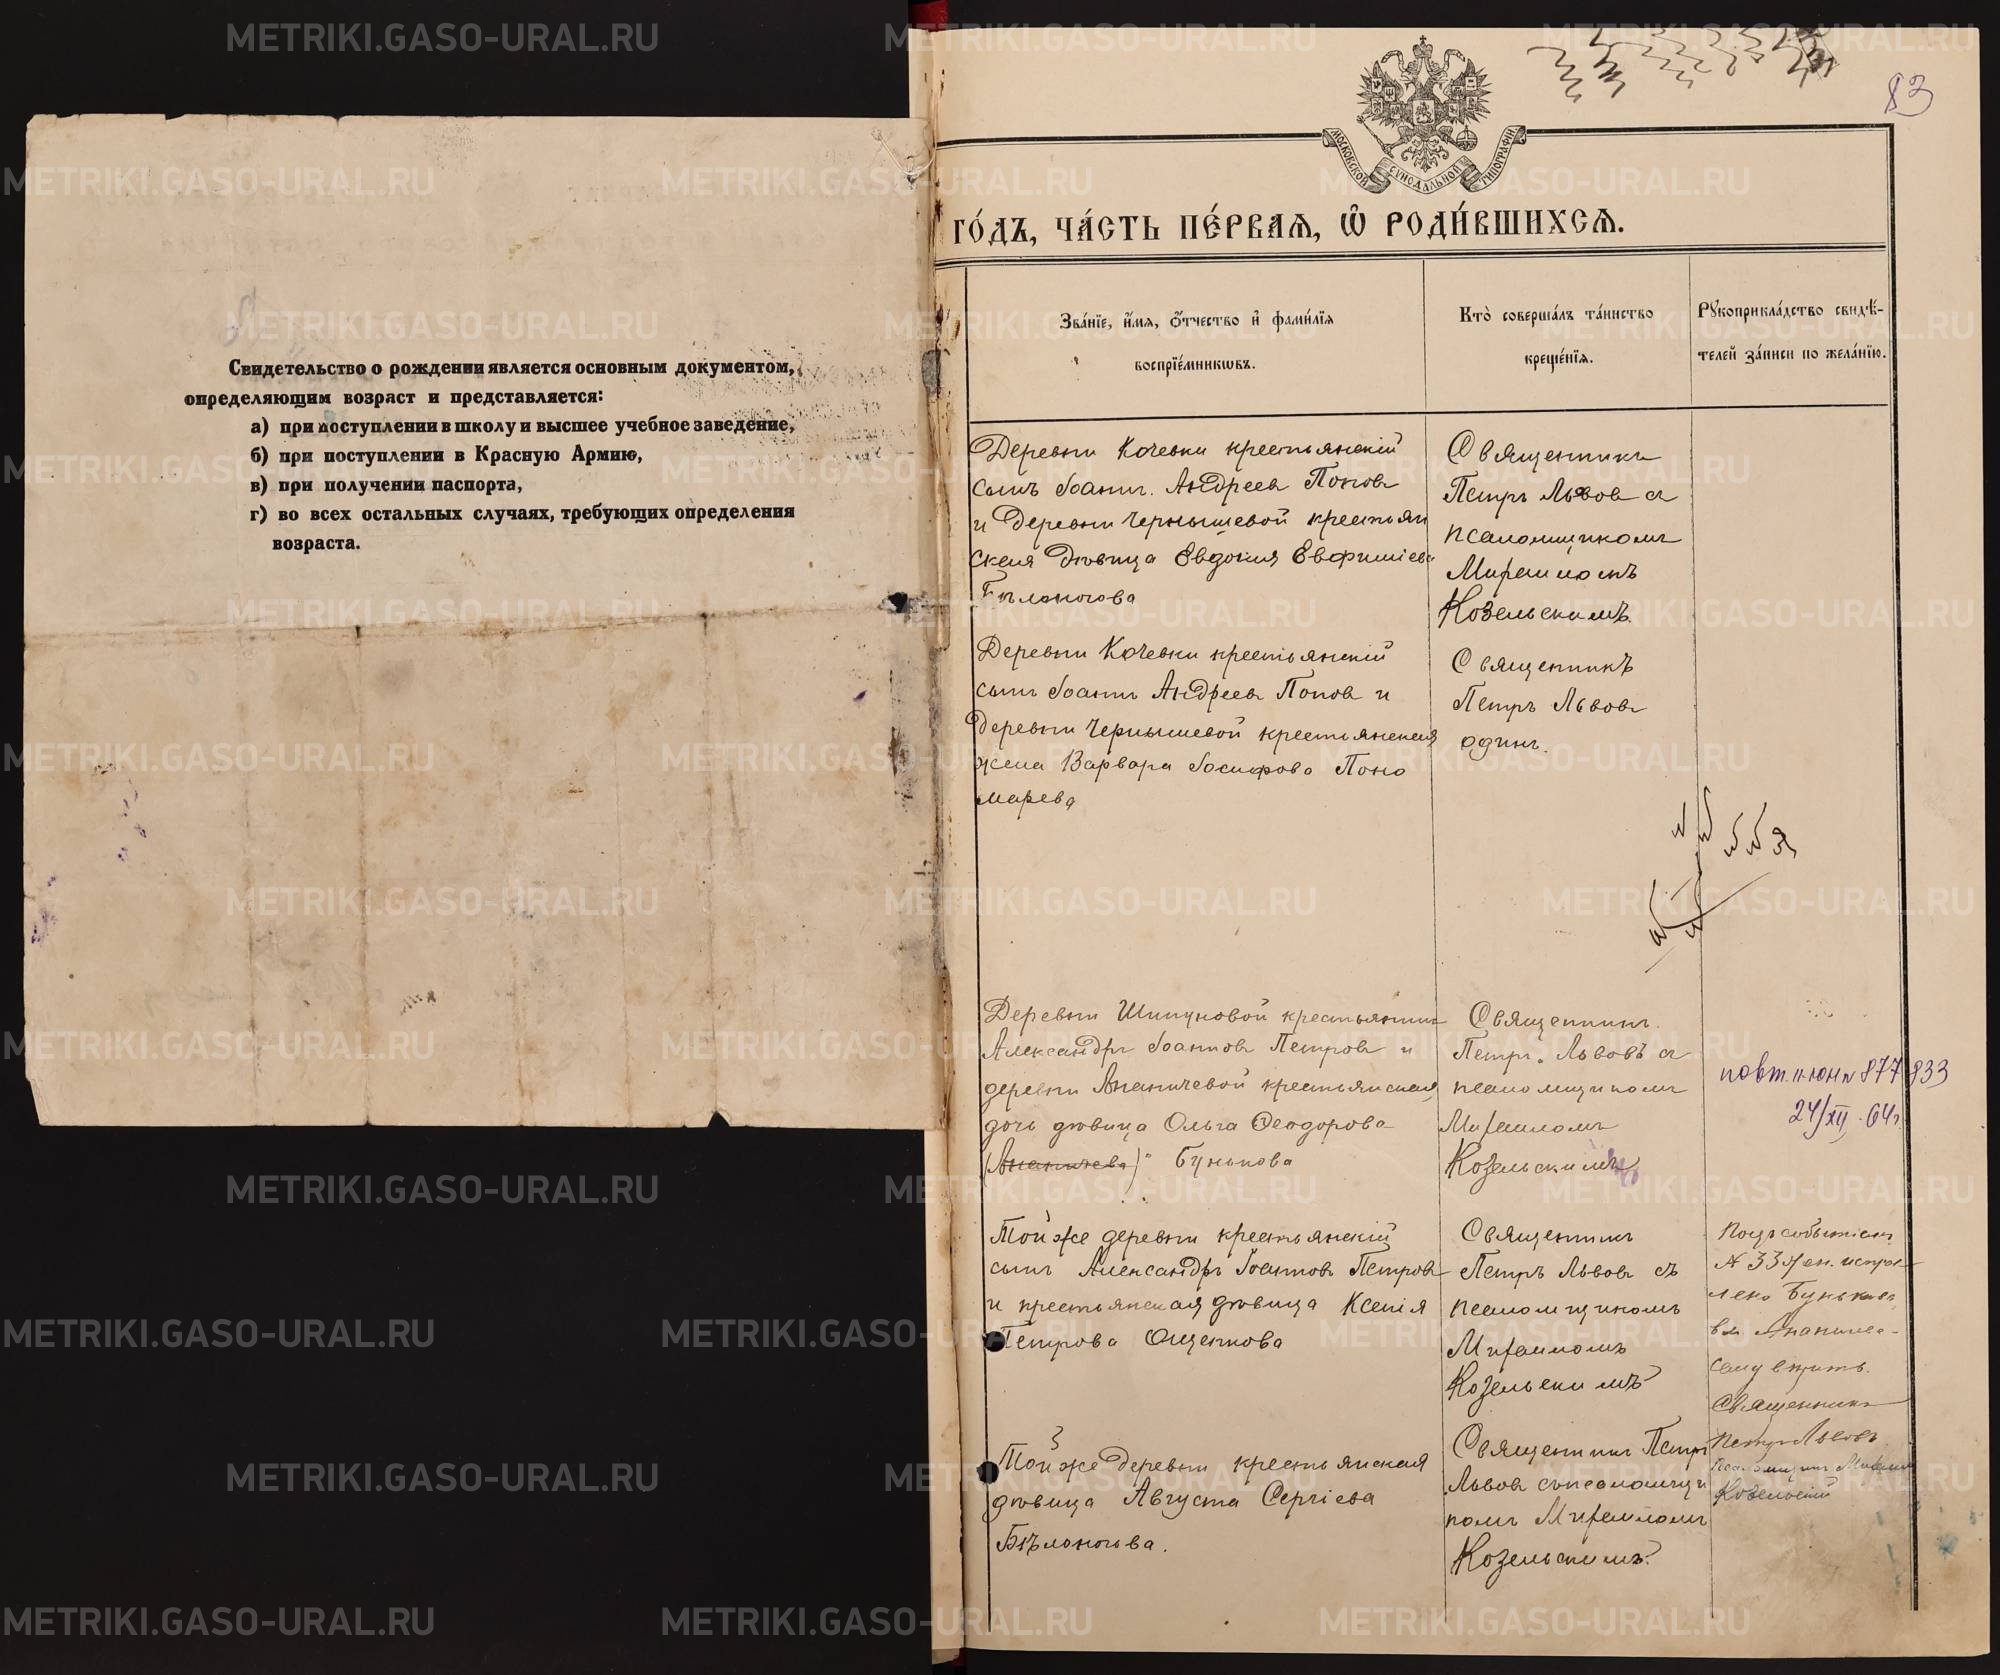 Свидетельство о рождении является основным документом,
определяющим возраст и представляется:
а) при поступлении в школу и высшее учебное заведение,
б) при поступлении в Красную Армию,
в) при получении паспорта,
г) во всех остальных случаях, требующих определения
возраста.
83
МОСКОВСКОЙ СѴНОДАЛЬНОЙ ТИПОГРАФІИ
ГО́ДЪ, ЧА́СТЬ ПЕ́РВАѦ, Ѽ РОДИ́ВШИХСѦ.
Зва́нїе, и҆́мѧ, ѻ҆́тчество и҆ фами́лїѧ
воспрїе́мникѡвъ.
Кто̀ соверша́лъ та́инство
креще́нїѧ.
Рꙋкоприкла́дство свидѣ́-
телей за́писи по жела́нїю.
Деревни Кочевки крестьянскій
сынъ Іоаннъ Андреевъ Поповъ
и деревни Чернышевой крестьян
ская дѣвица Евдокия Евфиміева
Бѣлоногова
Священникъ
Петръ Львовъ съ
псаломщикомъ
Михаиломъ
Козельскимъ.
Деревни Кочевки крестьянскій
сынъ Іоаннъ Андреевъ Поповъ и
деревни Чернышевой крестьянская
жена Варвара Іосифова Поно
марева
Священникъ
Петръ Львовъ
одинъ.
Деревни Шипуновой крестьянинъ
Александръ Іоанновъ Петровъ и
деревни Ананичевой крестьянская
дочь дѣвица Ольга Ѳеодорова
(Ананичева) Бунькова
Священникъ
Петръ Львовъ съ
псаломщикомъ
Михаиломъ
Козельскимъ
повт. II-ЮН № 877933
24/XII-64г.
Той же деревни крестьянскій
сынъ Александръ Іоанновъ Петровъ
и крестьянская дѣвица Ксенія
Петрова Ощепкова
Священникъ
Петръ Львовъ съ
псаломщикомъ
Михаиломъ
Козельскимъ
Подъ событіемъ
№ 33 испра
лено Буньков
вм. Ананичева
Священникъ
Петръ Львовъ
Псаломщикъ Михаилъ
Козельскій
Той же деревни крестьянская
дѣвица Августа Сергіева
Бѣлоногова.
Священникъ Петръ
Львовъ съ псаломщи
комъ Михаиломъ
Козельскимъ.
METRIKI.GASO-URAL.RU